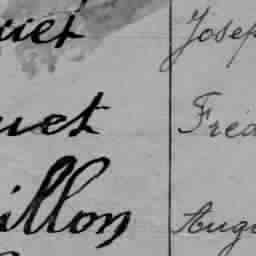 uet Josep
uet Fréd
illon Augu